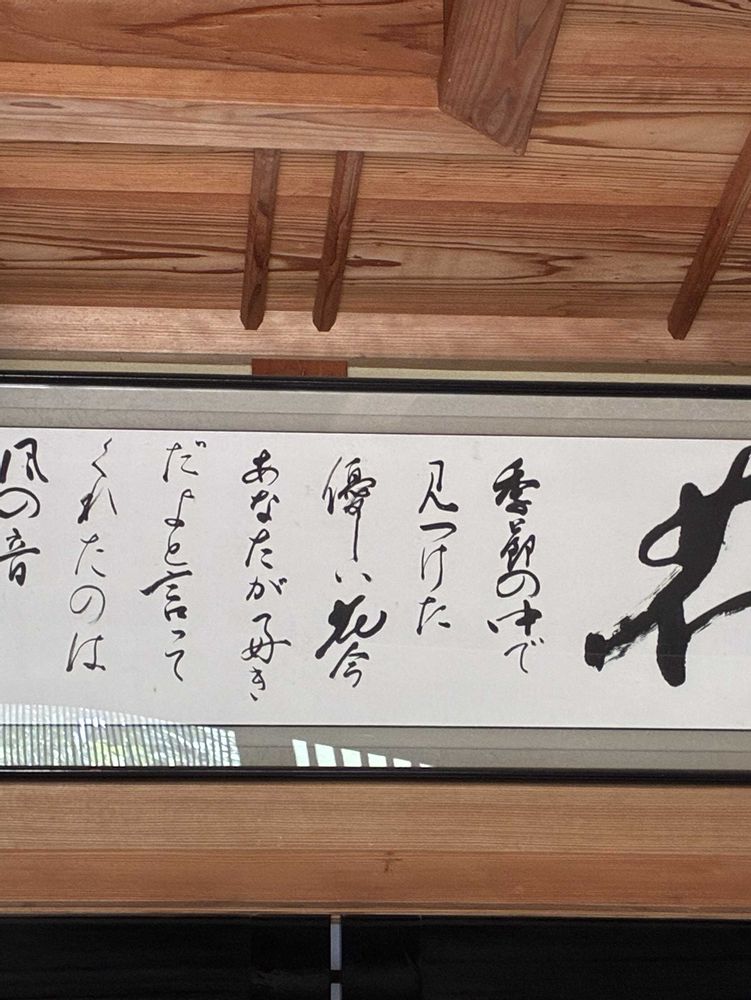 季節の中で
見つけた
優しい花今
あなたが好き
だよと言って
くれたのは
風の音